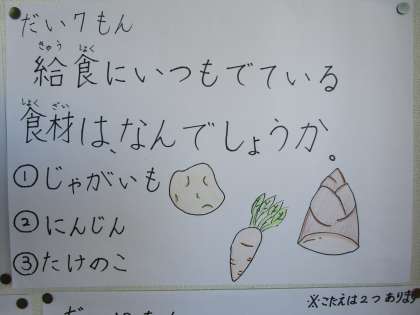 だい7もん
きゅう しょく
給食にいつもでている
しょく ざい
食材は、なんでしょうか。
①じゃがいも
②にんじん
③たけのこ
※こたえは2つあります